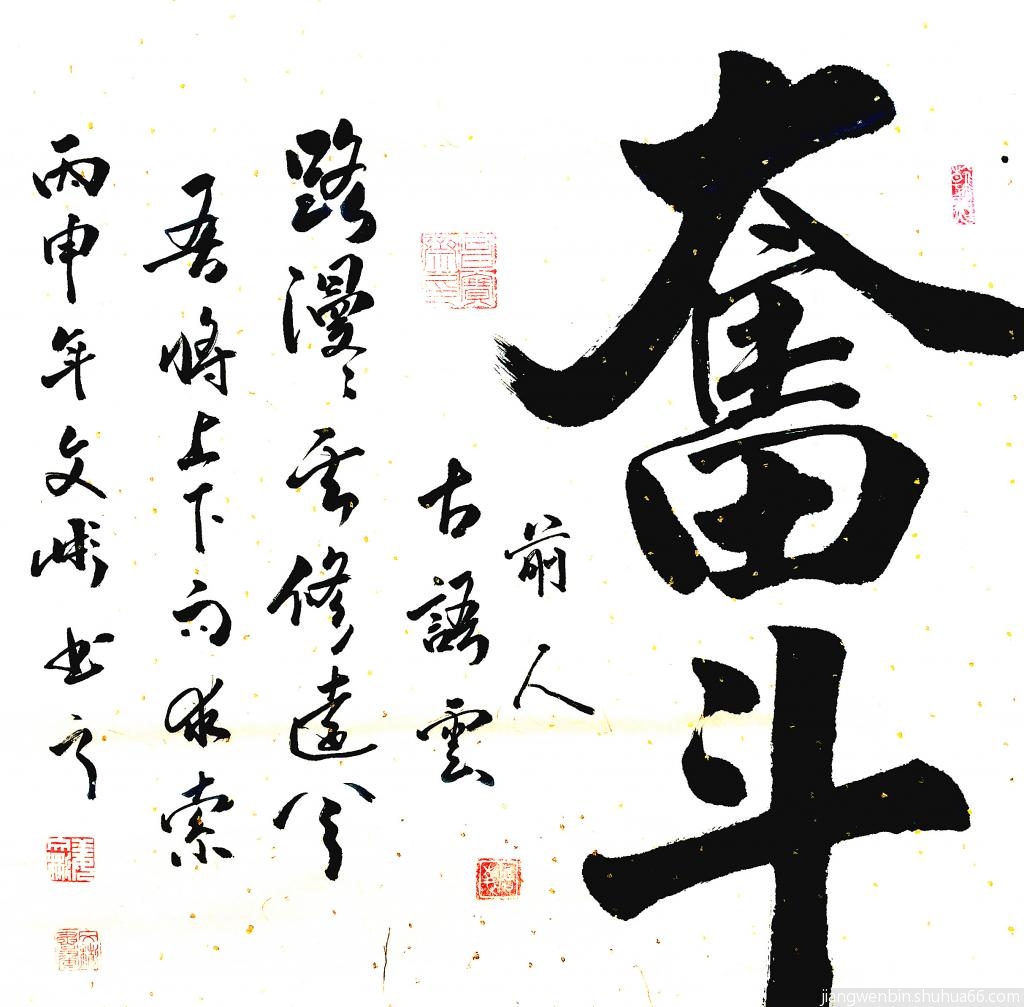 奮斗
前人
古語雲
路漫々其修遠兮
吾将上下而求索
丙申年文彬书
jiangwenbin.shuhua66.com